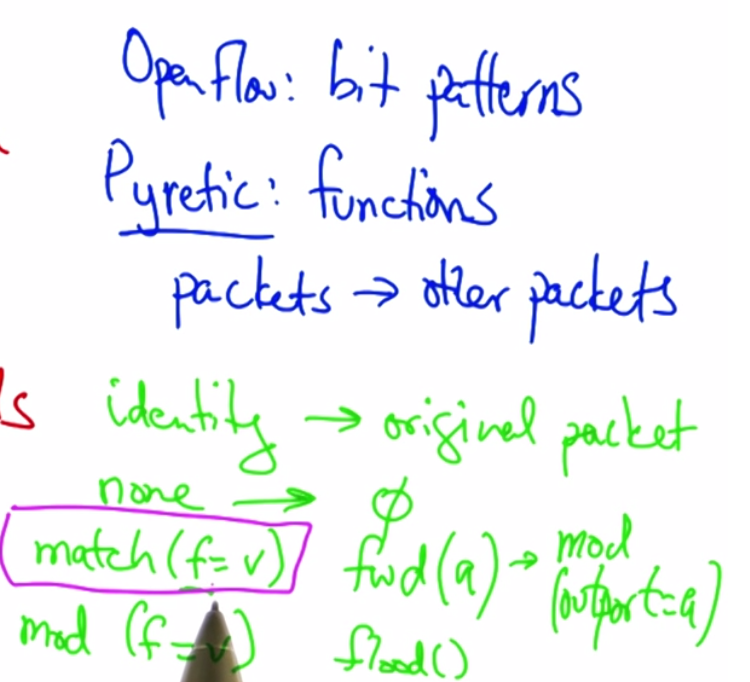 Openflow: bit patterns
Pyretic: functions
packets → other packets
identity → original packet
none → ∅
match (f=v) fwd(a) → mod (outport=a)
mod (f=v) flood()